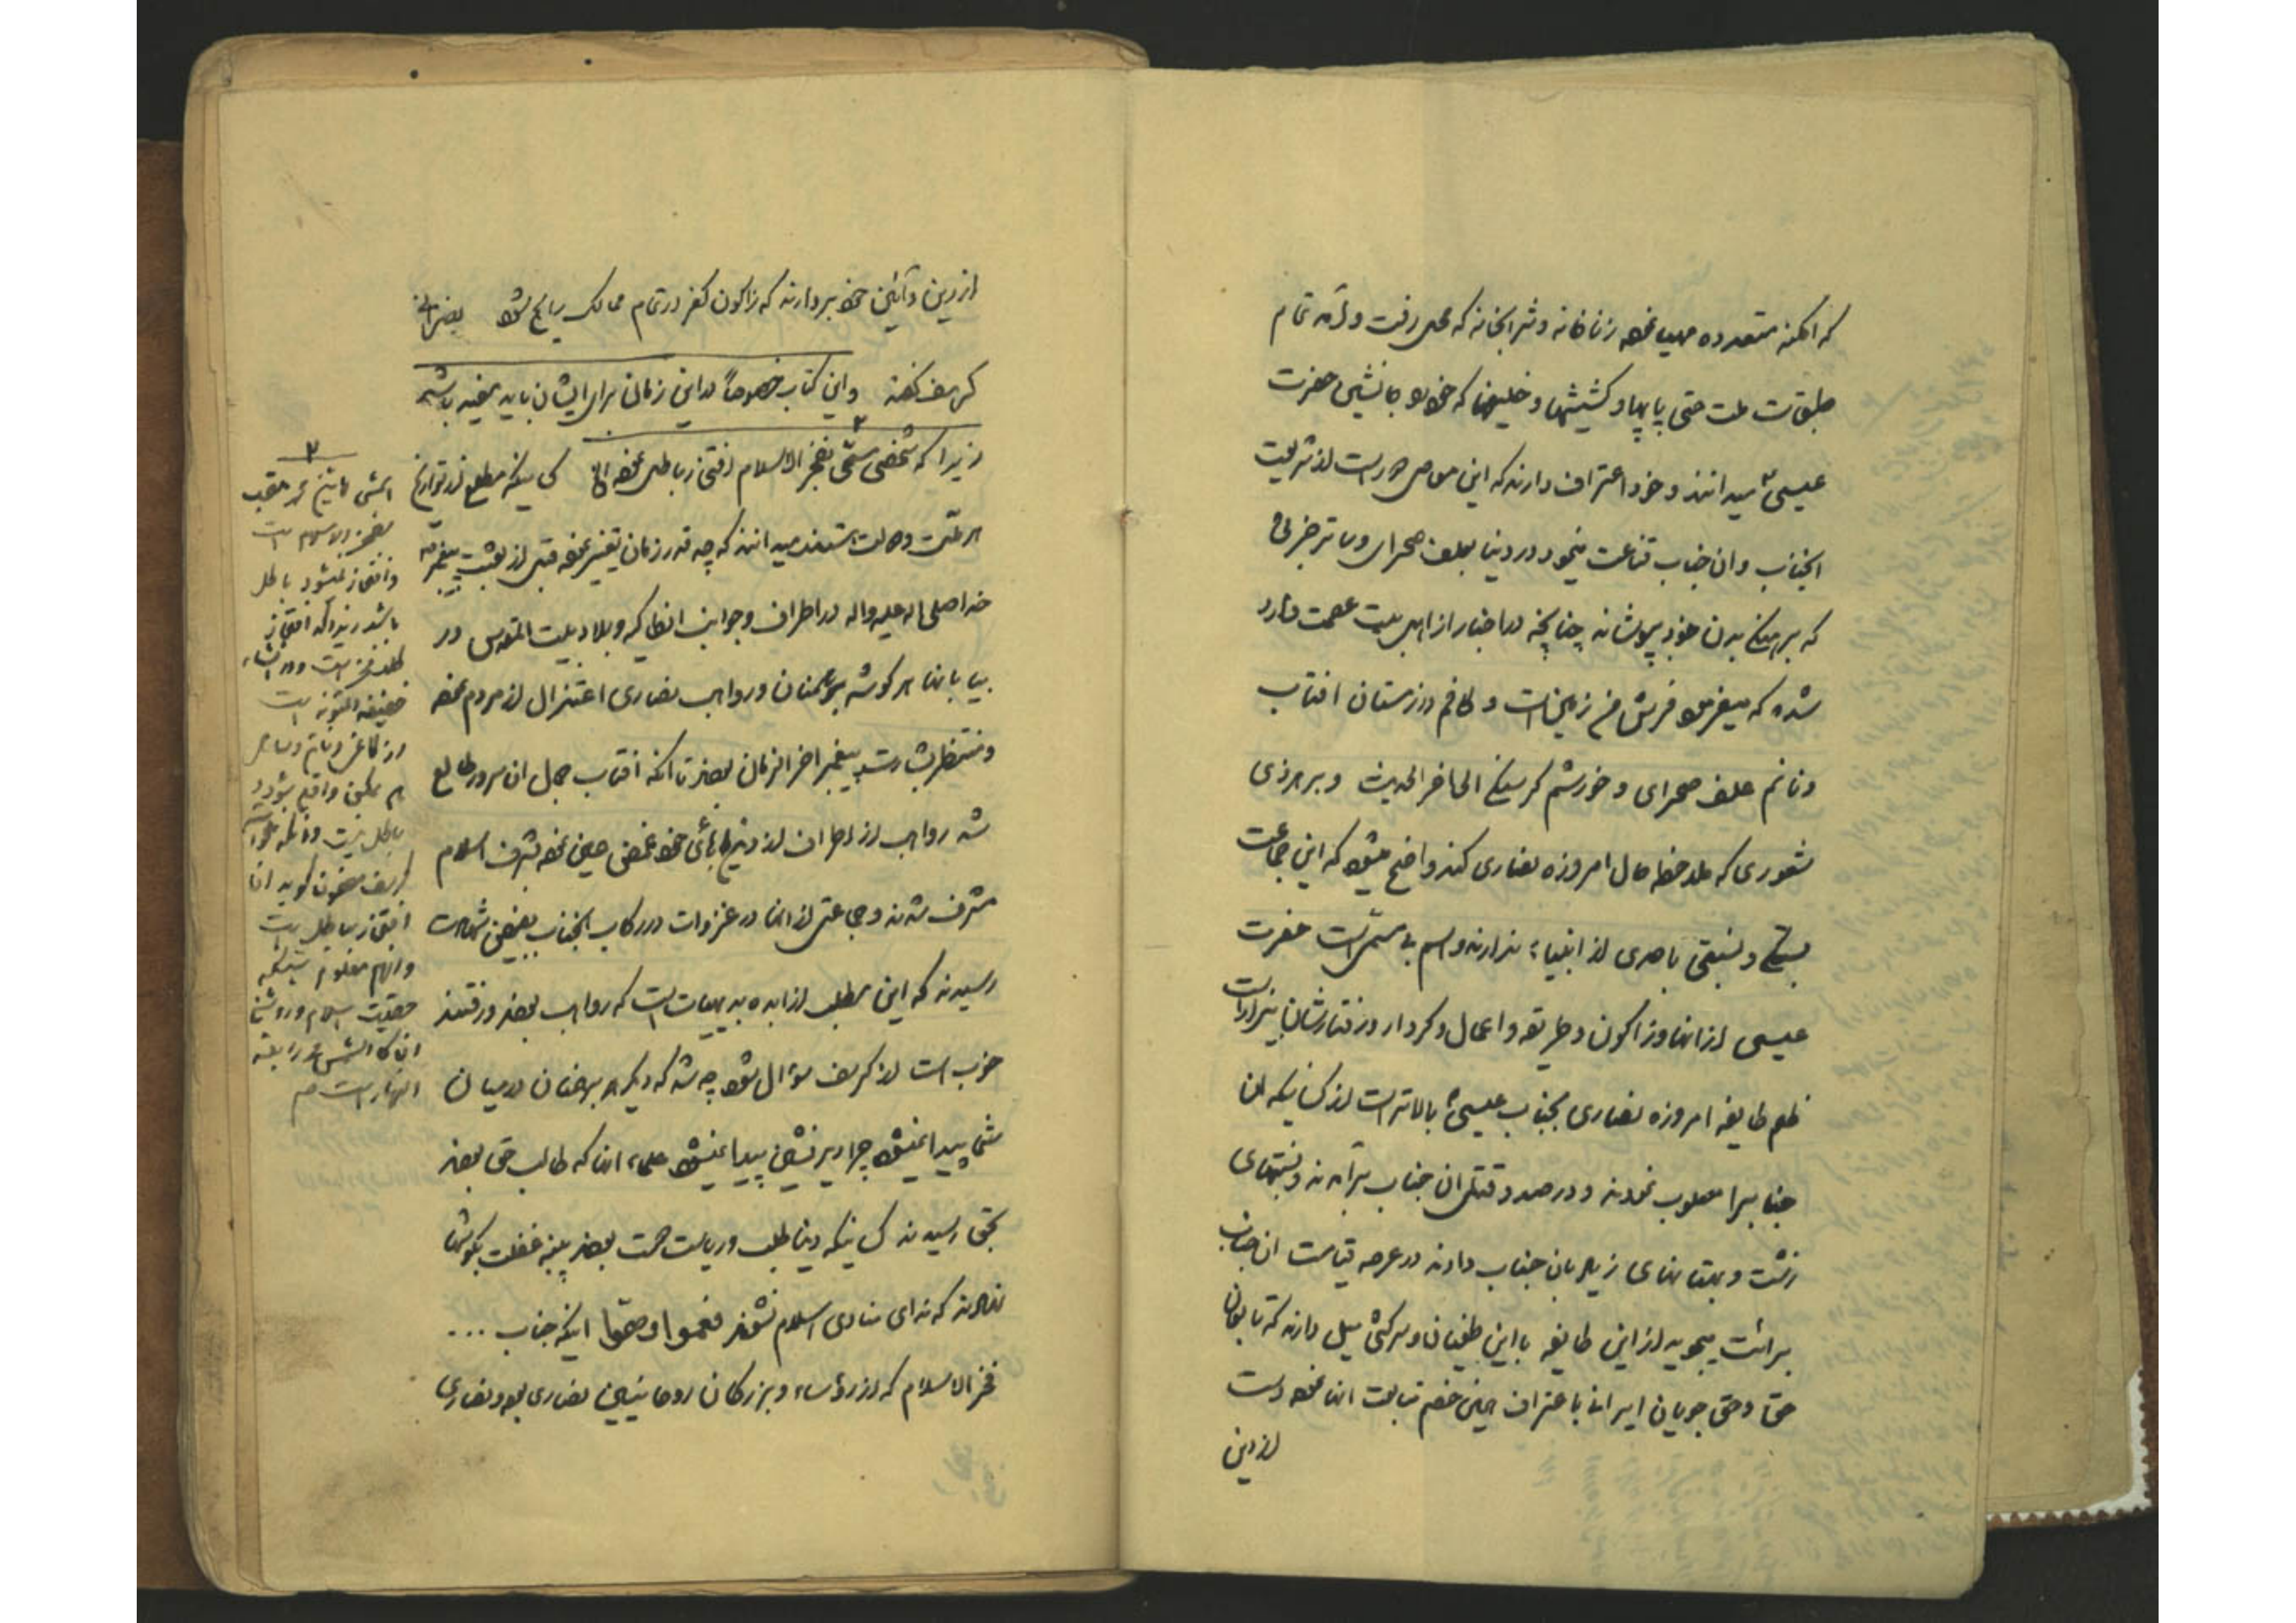 که امکنه متعدده مهیا نموده زناخانه و شرابخانه که محل رفت و آمد تمام
طبقات ملت حتی پاپها و کشیشها و خلیفها که خود را جانشین حضرت
عیسی میدانند و خود اعتراف دارند که این معاصی دور است از شریعت
انجناب و ان جناب قناعت مینمود در دنیا بعلف صحرای و ساتر جزئی
که برهنگی بدن خود بپوشاند چنانچه در اخبار از اهل بیت عصمت وارد
شده که میفرمود فرش من زمین است و لحافم در زمستان افتاب
و نانم علف صحرای و خورشم گرسنگی الی اخر الحدیث و بر هر ذی
شعوری که ملاحظه حال امروزه نصاری کند واضح میشود که این جماعت
بستگی و نسبتی باحدی از انبیاء ندارند و اسم بی مسمی است حضرت
عیسی از انها و زاکون و طریقه و اعمال و کردار و رفتارشان بیزار است
ظلم طایفه امروزه نصاری بجناب عیسی بالاتر است از کسانیکه ان
جنابرا مصلوب نمودند و در صدد قتل ان جناب برآمدند و نسبتهای
زشت و بهتانهای زیاد بان جناب دادند در عرصه قیامت ان جناب
برائت میجوید از این طایفه با این طغیان و سرکشی میل دارند که تابعان
حق و حق جویان ایرانی با اعتراف همین خصم متابعت انها نموده دست
از دین
از دین و آئین خود بردارند که زاکون کفر در تمام ممالک رایج شود
کریف کفته و این کتاب خصوصاً در این زمان برای ایشان باید مفید باشد
زیرا که شخصی مسمی بفخر الاسلام افتخار باطل نموده الخ کسانیکه مطلع از تواریخ
هر ملت و دولت هستند میدانند که چه قدر زمان تغییر نموده قبل از بعثت پیغمبر
خدا صلی اله علیه واله در اطراف و جوانب انطاکیه و بلاد بیت المقدس در
بیابانها هر گوشه برهمنان و رواهب نصاری اعتزال از مردم نموده
و منتظر بشارت پیغمبر اخر الزمان بودند تا انکه افتاب جمال ان سرور طالع
شد رواهب از اطراف از دیرهای خود غمض عین نموده بشرف اسلام
مشرف شدند و جماعتی از انها در غزوات در رکاب انجناب بفیض شهادت
رسیدند که این مطلب از ابده بدیهیات است که رواهب بودند و رفتند
خوب است از کریف سؤال شود چه شد که دیگر برهمنان در میان
شما پیدا نمیشود چرا دیر نشین پیدا نمیشود علماء انها که طالب حق بودند
بحق رسیدند کسانیکه دنیا طلب و ریاست دوست بودند پنبه غفلت بگوشها
نهادند که ندای منادی اسلام نشنوند فعموا و صموا اینکه جناب ...
فخر الاسلام که از رؤساء و بزرگان روحانیین نصاری بود و نصاری
۲
اسمش محمد ملقب
بفخر الاسلام است
و افتخار نمیشود باطل
باشد زیرا که افتخار